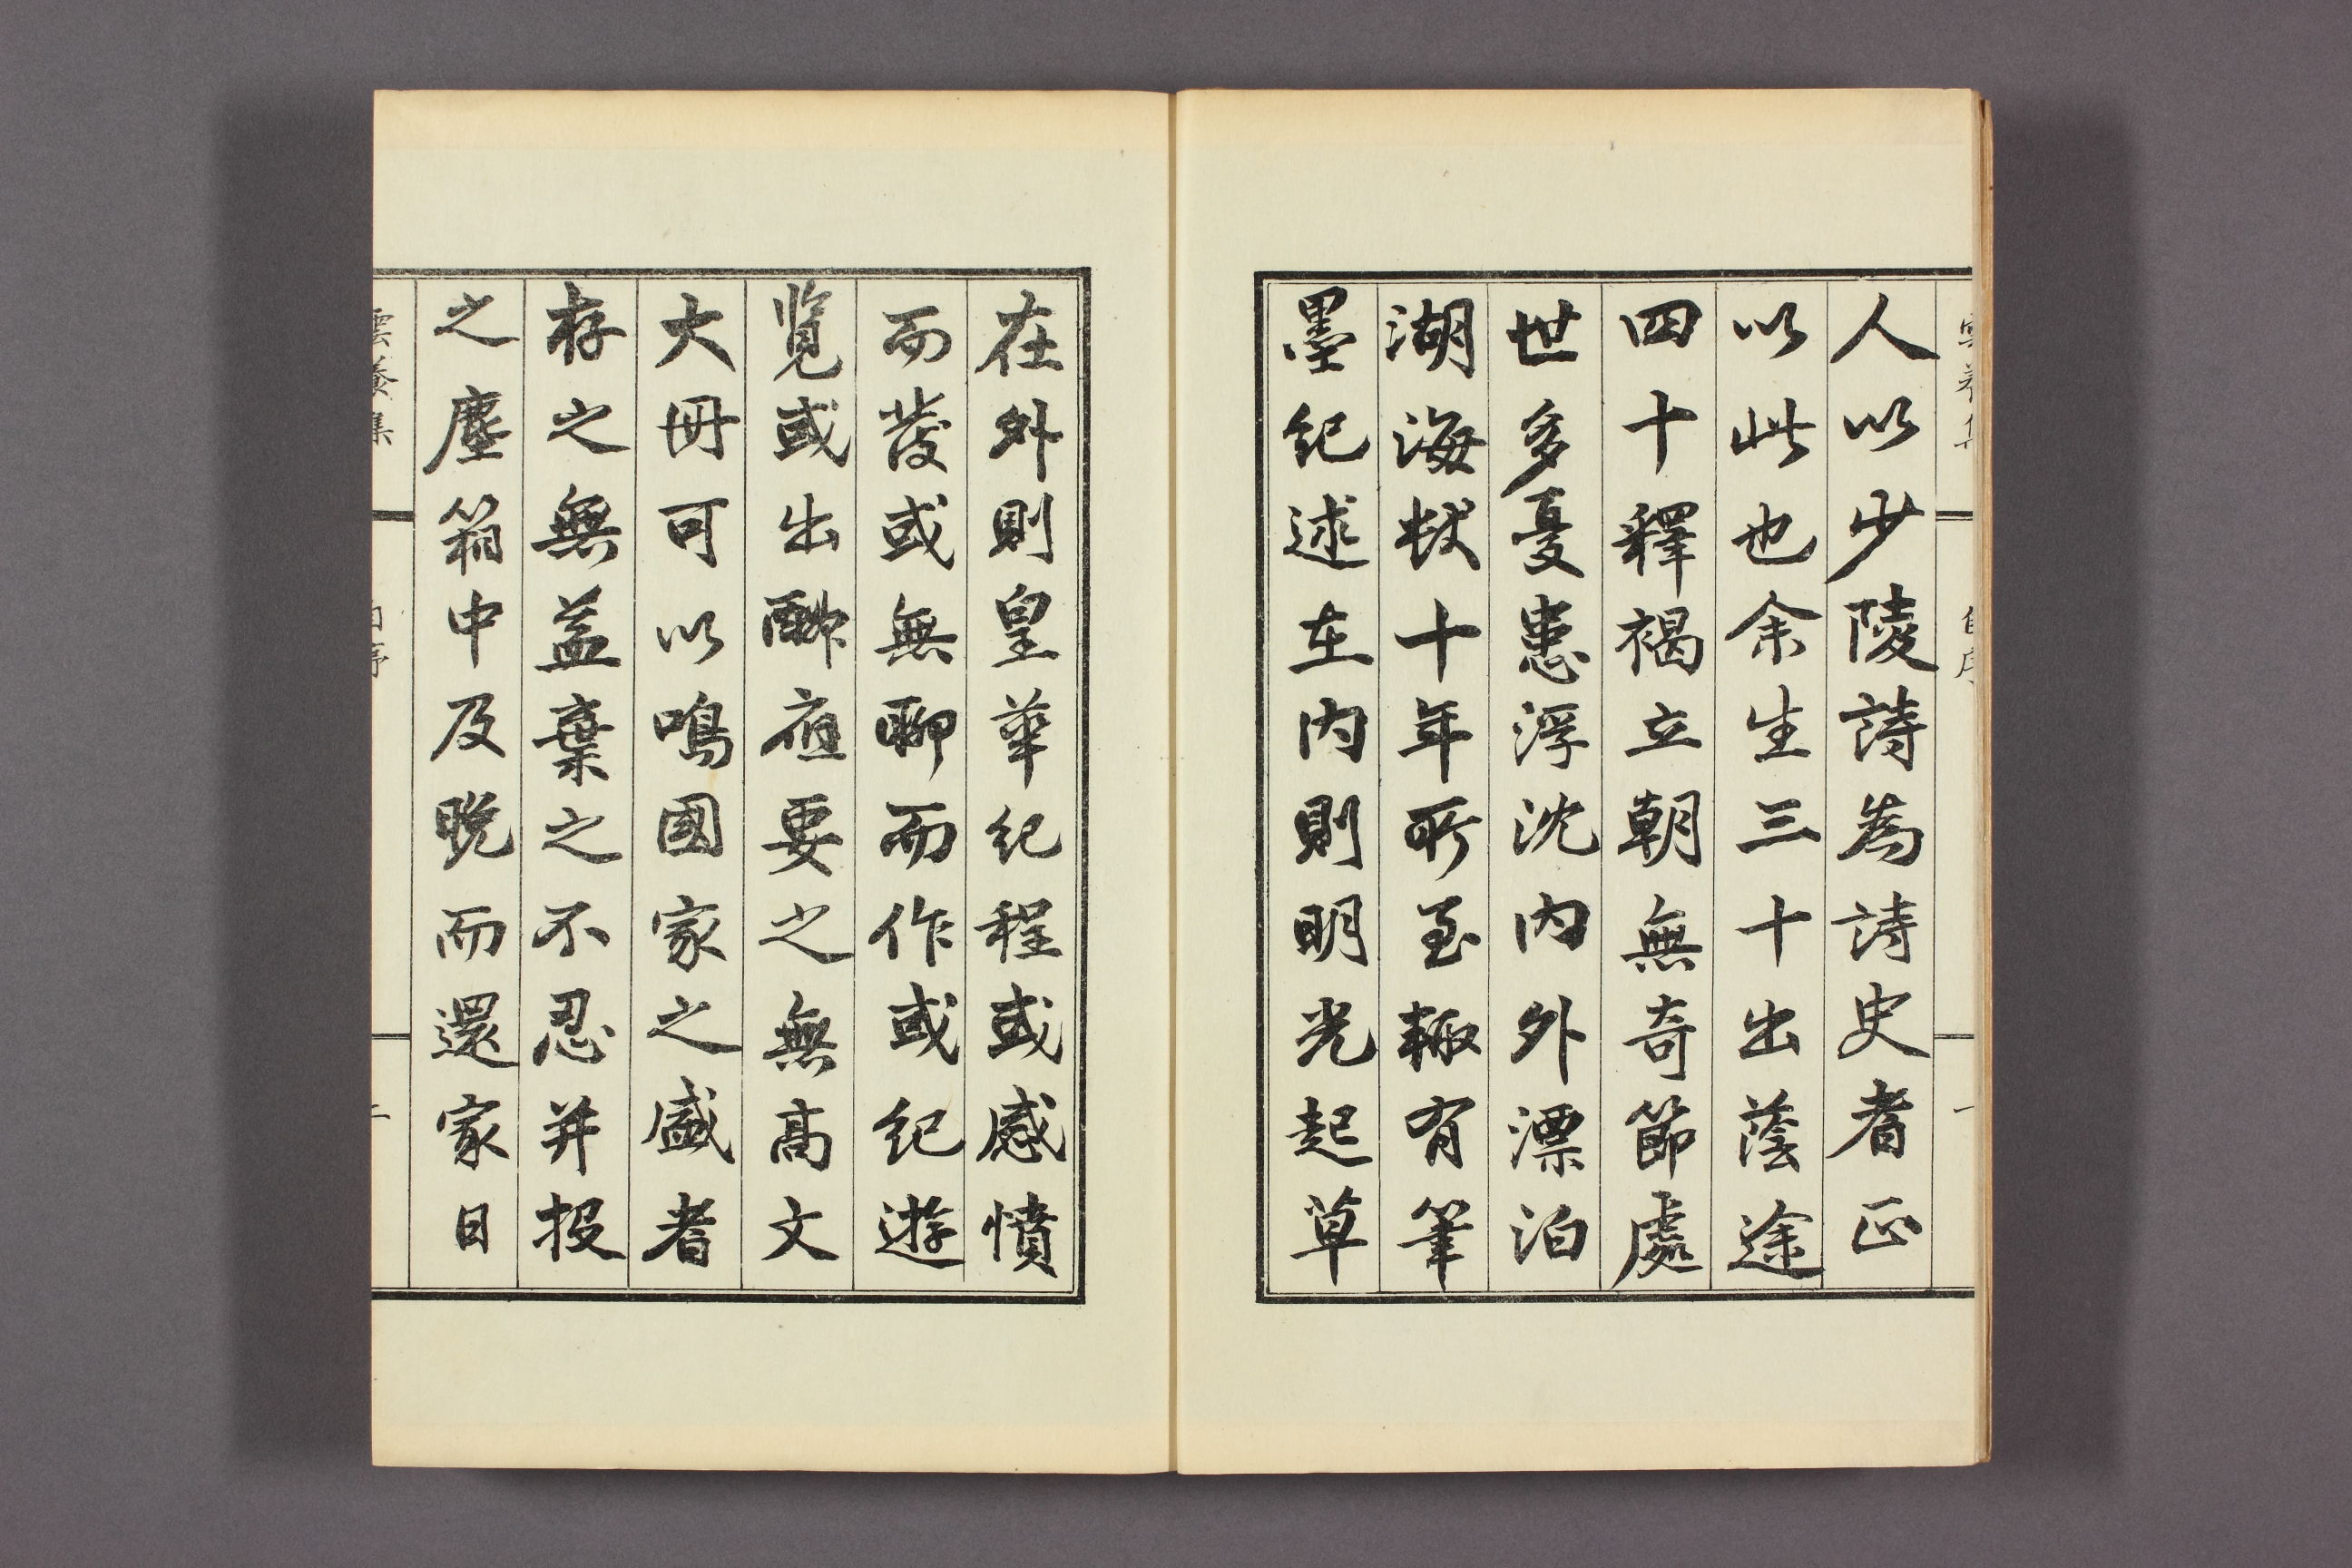 雲養集 自序 一
人以少陵詩為詩史者正
以此也余生三十出蔭途
四十釋褐立朝無奇節處
世多憂患浮沈内外漂泊
湖海數十年所至輙有筆
墨紀述在内則明光起草
在外則皇華紀程或感憤
而發或無聊而作或紀遊
覽或出酬應要之無高文
大冊可以鳴國家之盛者
存之無益棄之不忍并投
之塵箱中及晩而還家日
雲養集 自序 二